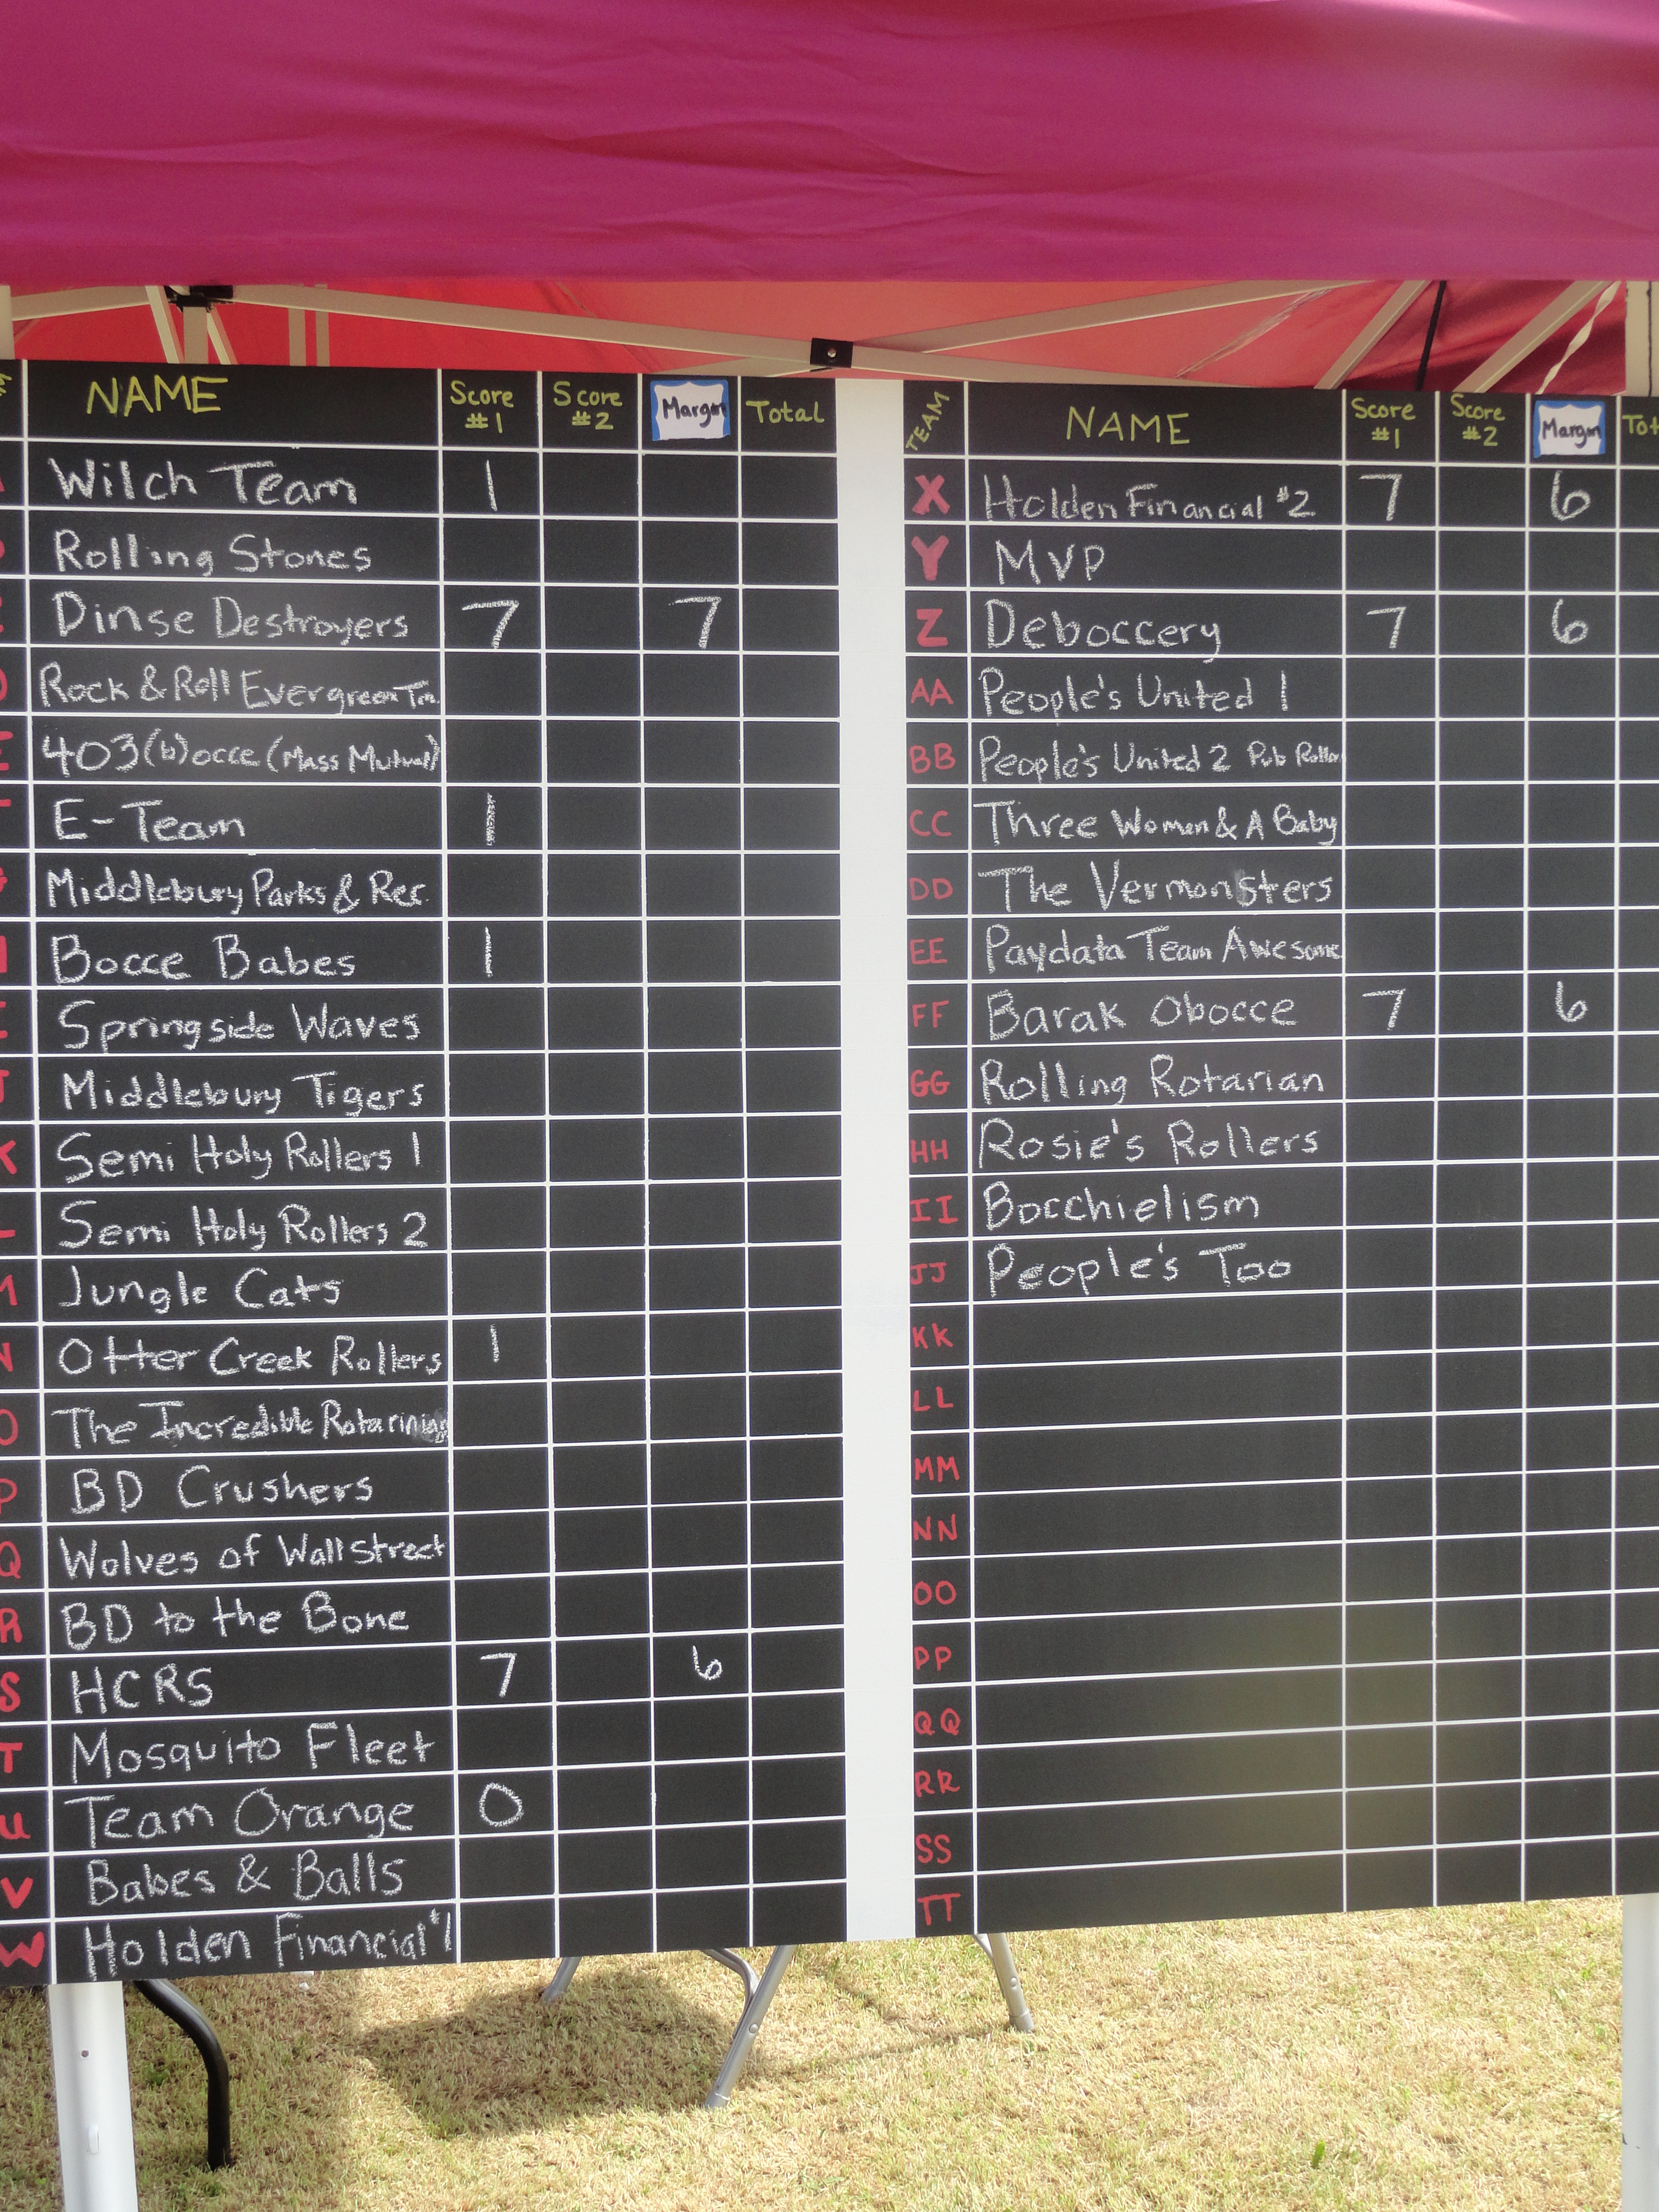 NAME Score #1 Score #2 Margin Total
Wilch Team 1
Rolling Stones
Dinse Destroyers 7 7
D Rock & Roll Evergreen Tre.
E 403(b)occe (Mass Mutual)
E-Team 1
G Middlebury Parks & Rec.
Bocce Babes 1
Springside Waves
J Middlebury Tigers
K Semi Holy Rollers 1
L Semi Holy Rollers 2
M Jungle Cats
N Otter Creek Rollers 1
O The Incredible
P BD Crushers
Q Wolves of Wall Street
R BD to the Bone
S HCRS 7 6
T Mosquito Fleet
U Team Orange 0
V Babes & Balls
W Holden Financial #1
TEAM NAME Score #1 Score #2 Margin Tot
X Holden Financial #2 7 6
Y MVP
Z Deboccery 7 6
AA People's United 1
BB People's United 2 Pub Roller
CC Three Women & A Baby
DD The Vermonsters
EE Paydata Team Awesome
FF Barak Obocce 7 6
GG Rolling Rotarian
HH Rosie's Rollers
II Bocchielism
JJ People's Too
KK
LL
MM
NN
OO
PP
QQ
RR
SS
TT